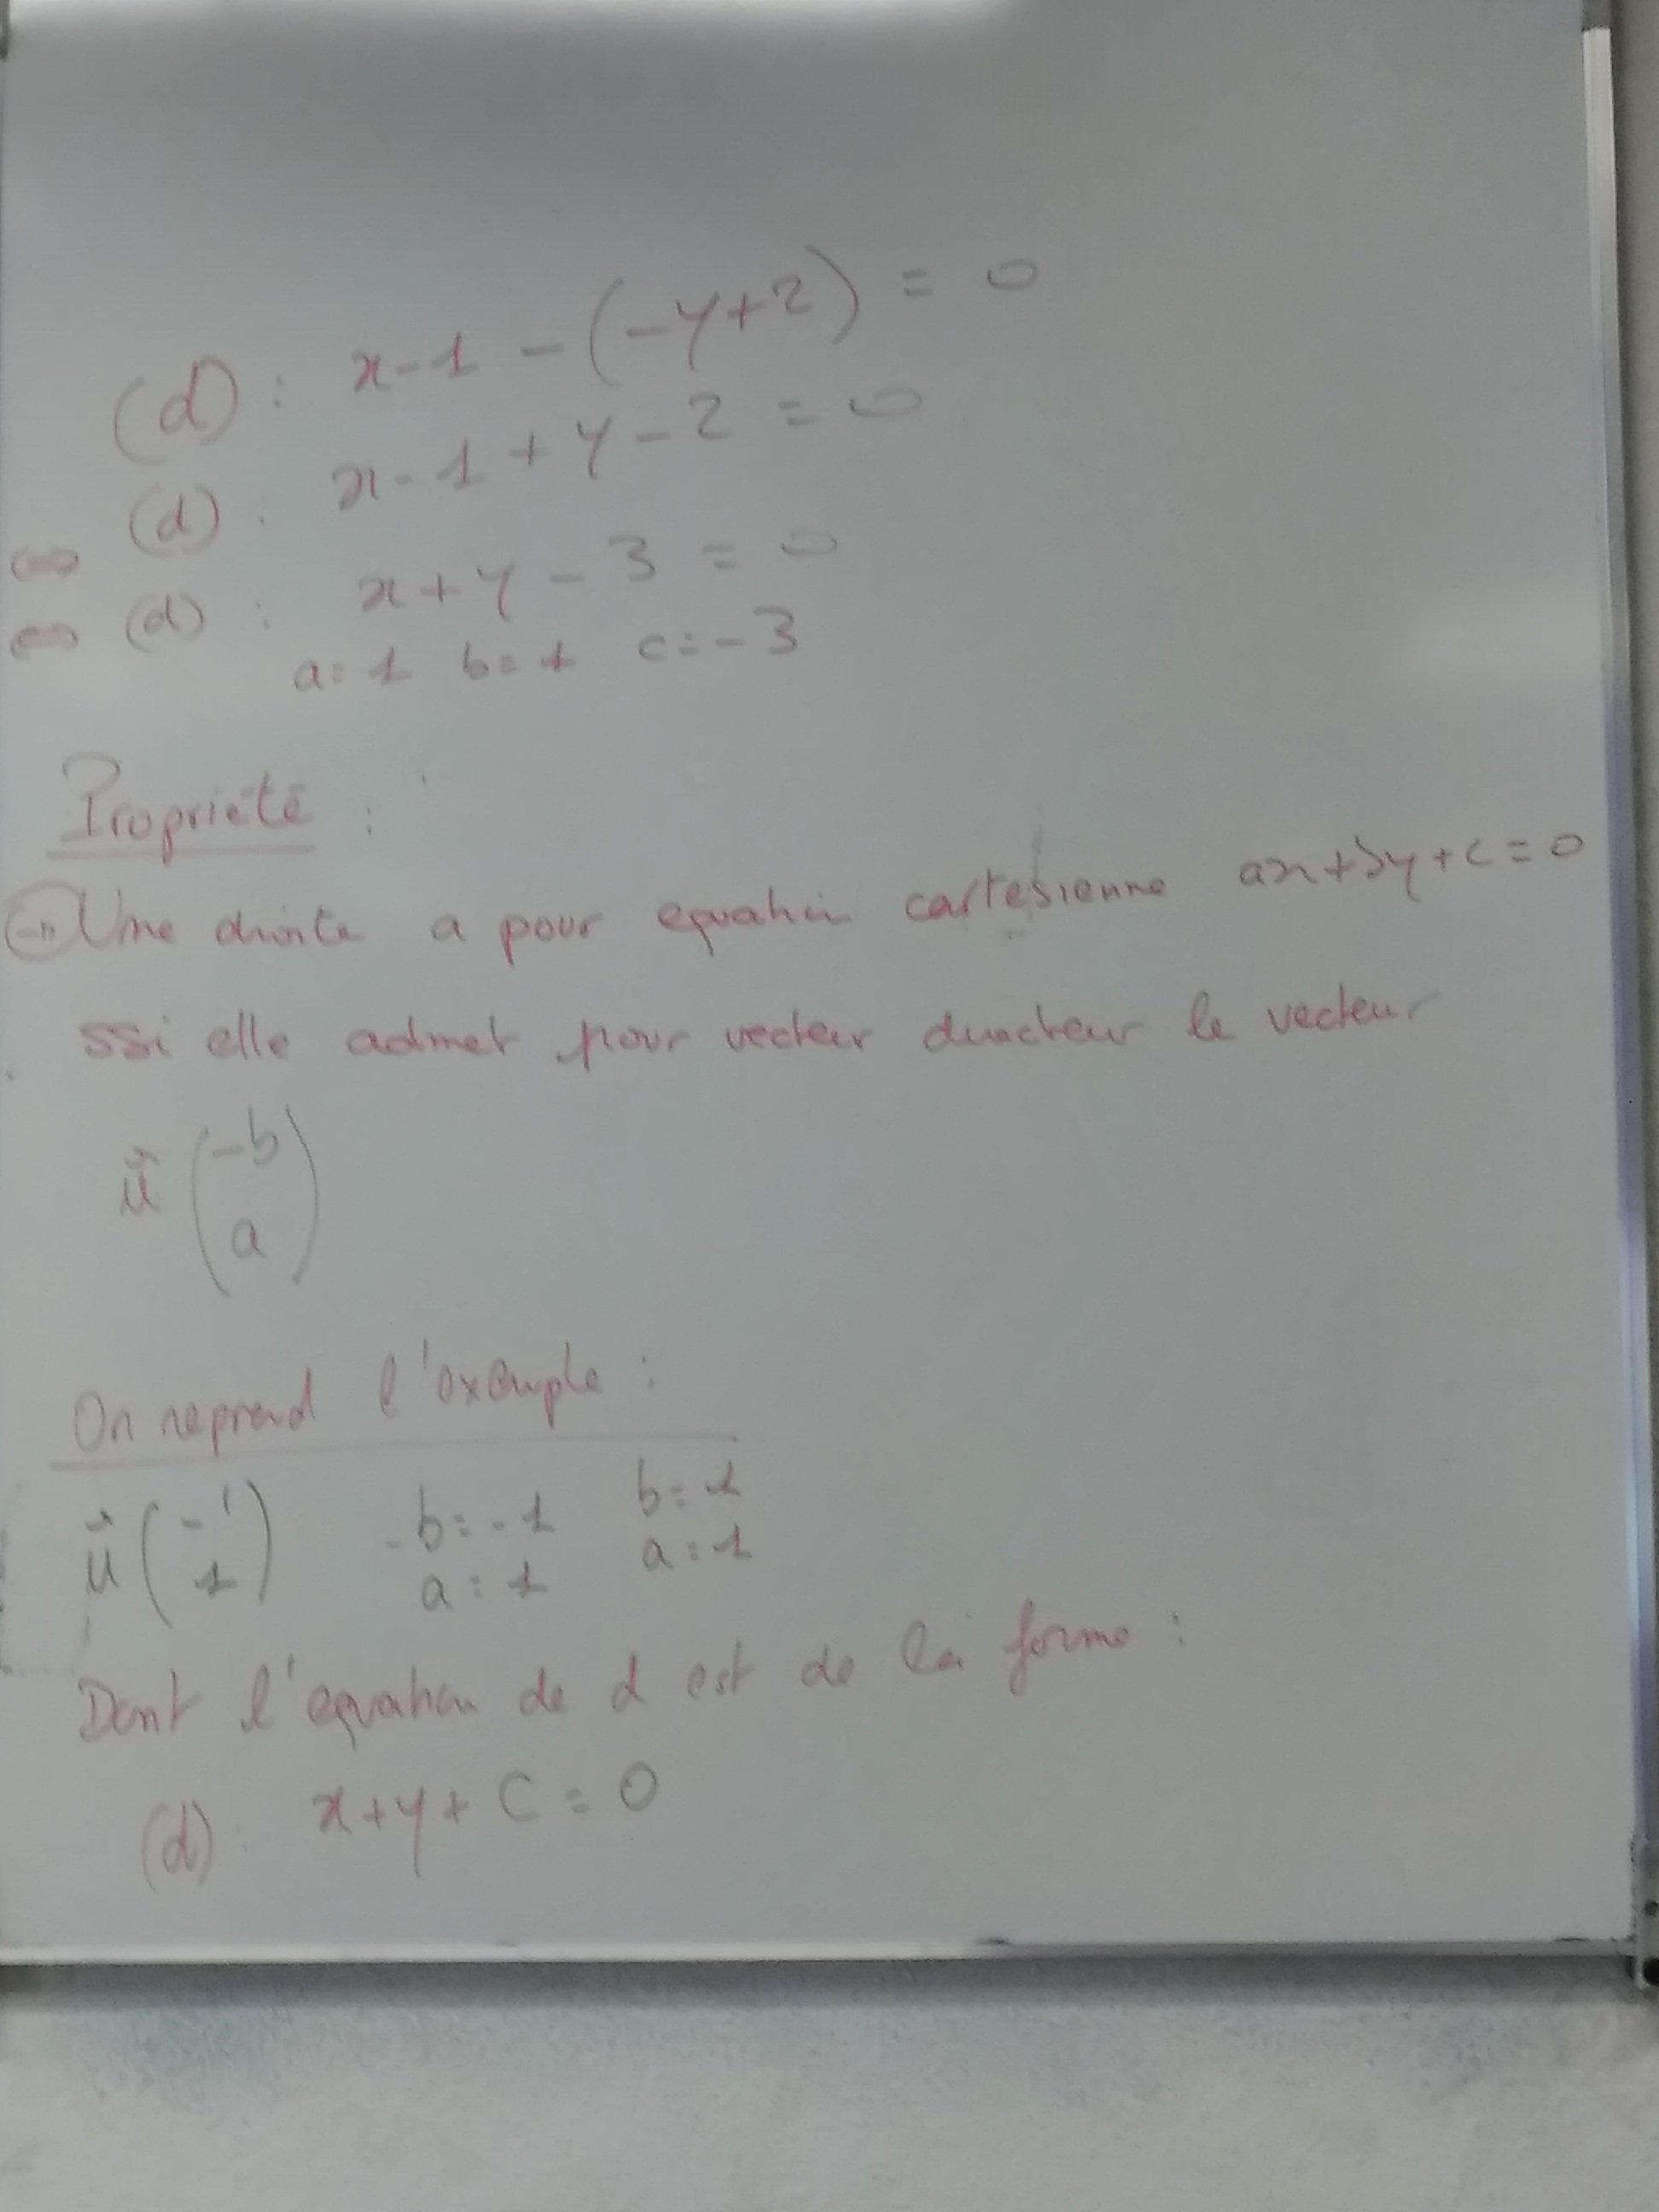 (d) : x-1 - (-y+2) = 0
⇔ (d) : x-1 + y - 2 = 0
⇔ (d) : x + y - 3 = 0
a = 1 b = 1 c = -3
Propriété :
Une droite a pour equation cartesienne ax+by+c=0
ssi elle admet pour vecteur directeur le vecteur
u⃗ (-b
a)
On reprend l'exemple :
u⃗ (-1
1) -b = -1 b = 1
a = 1 a = 1
Dont l'equation de d est de la forme :
(d) : x+y+C = 0